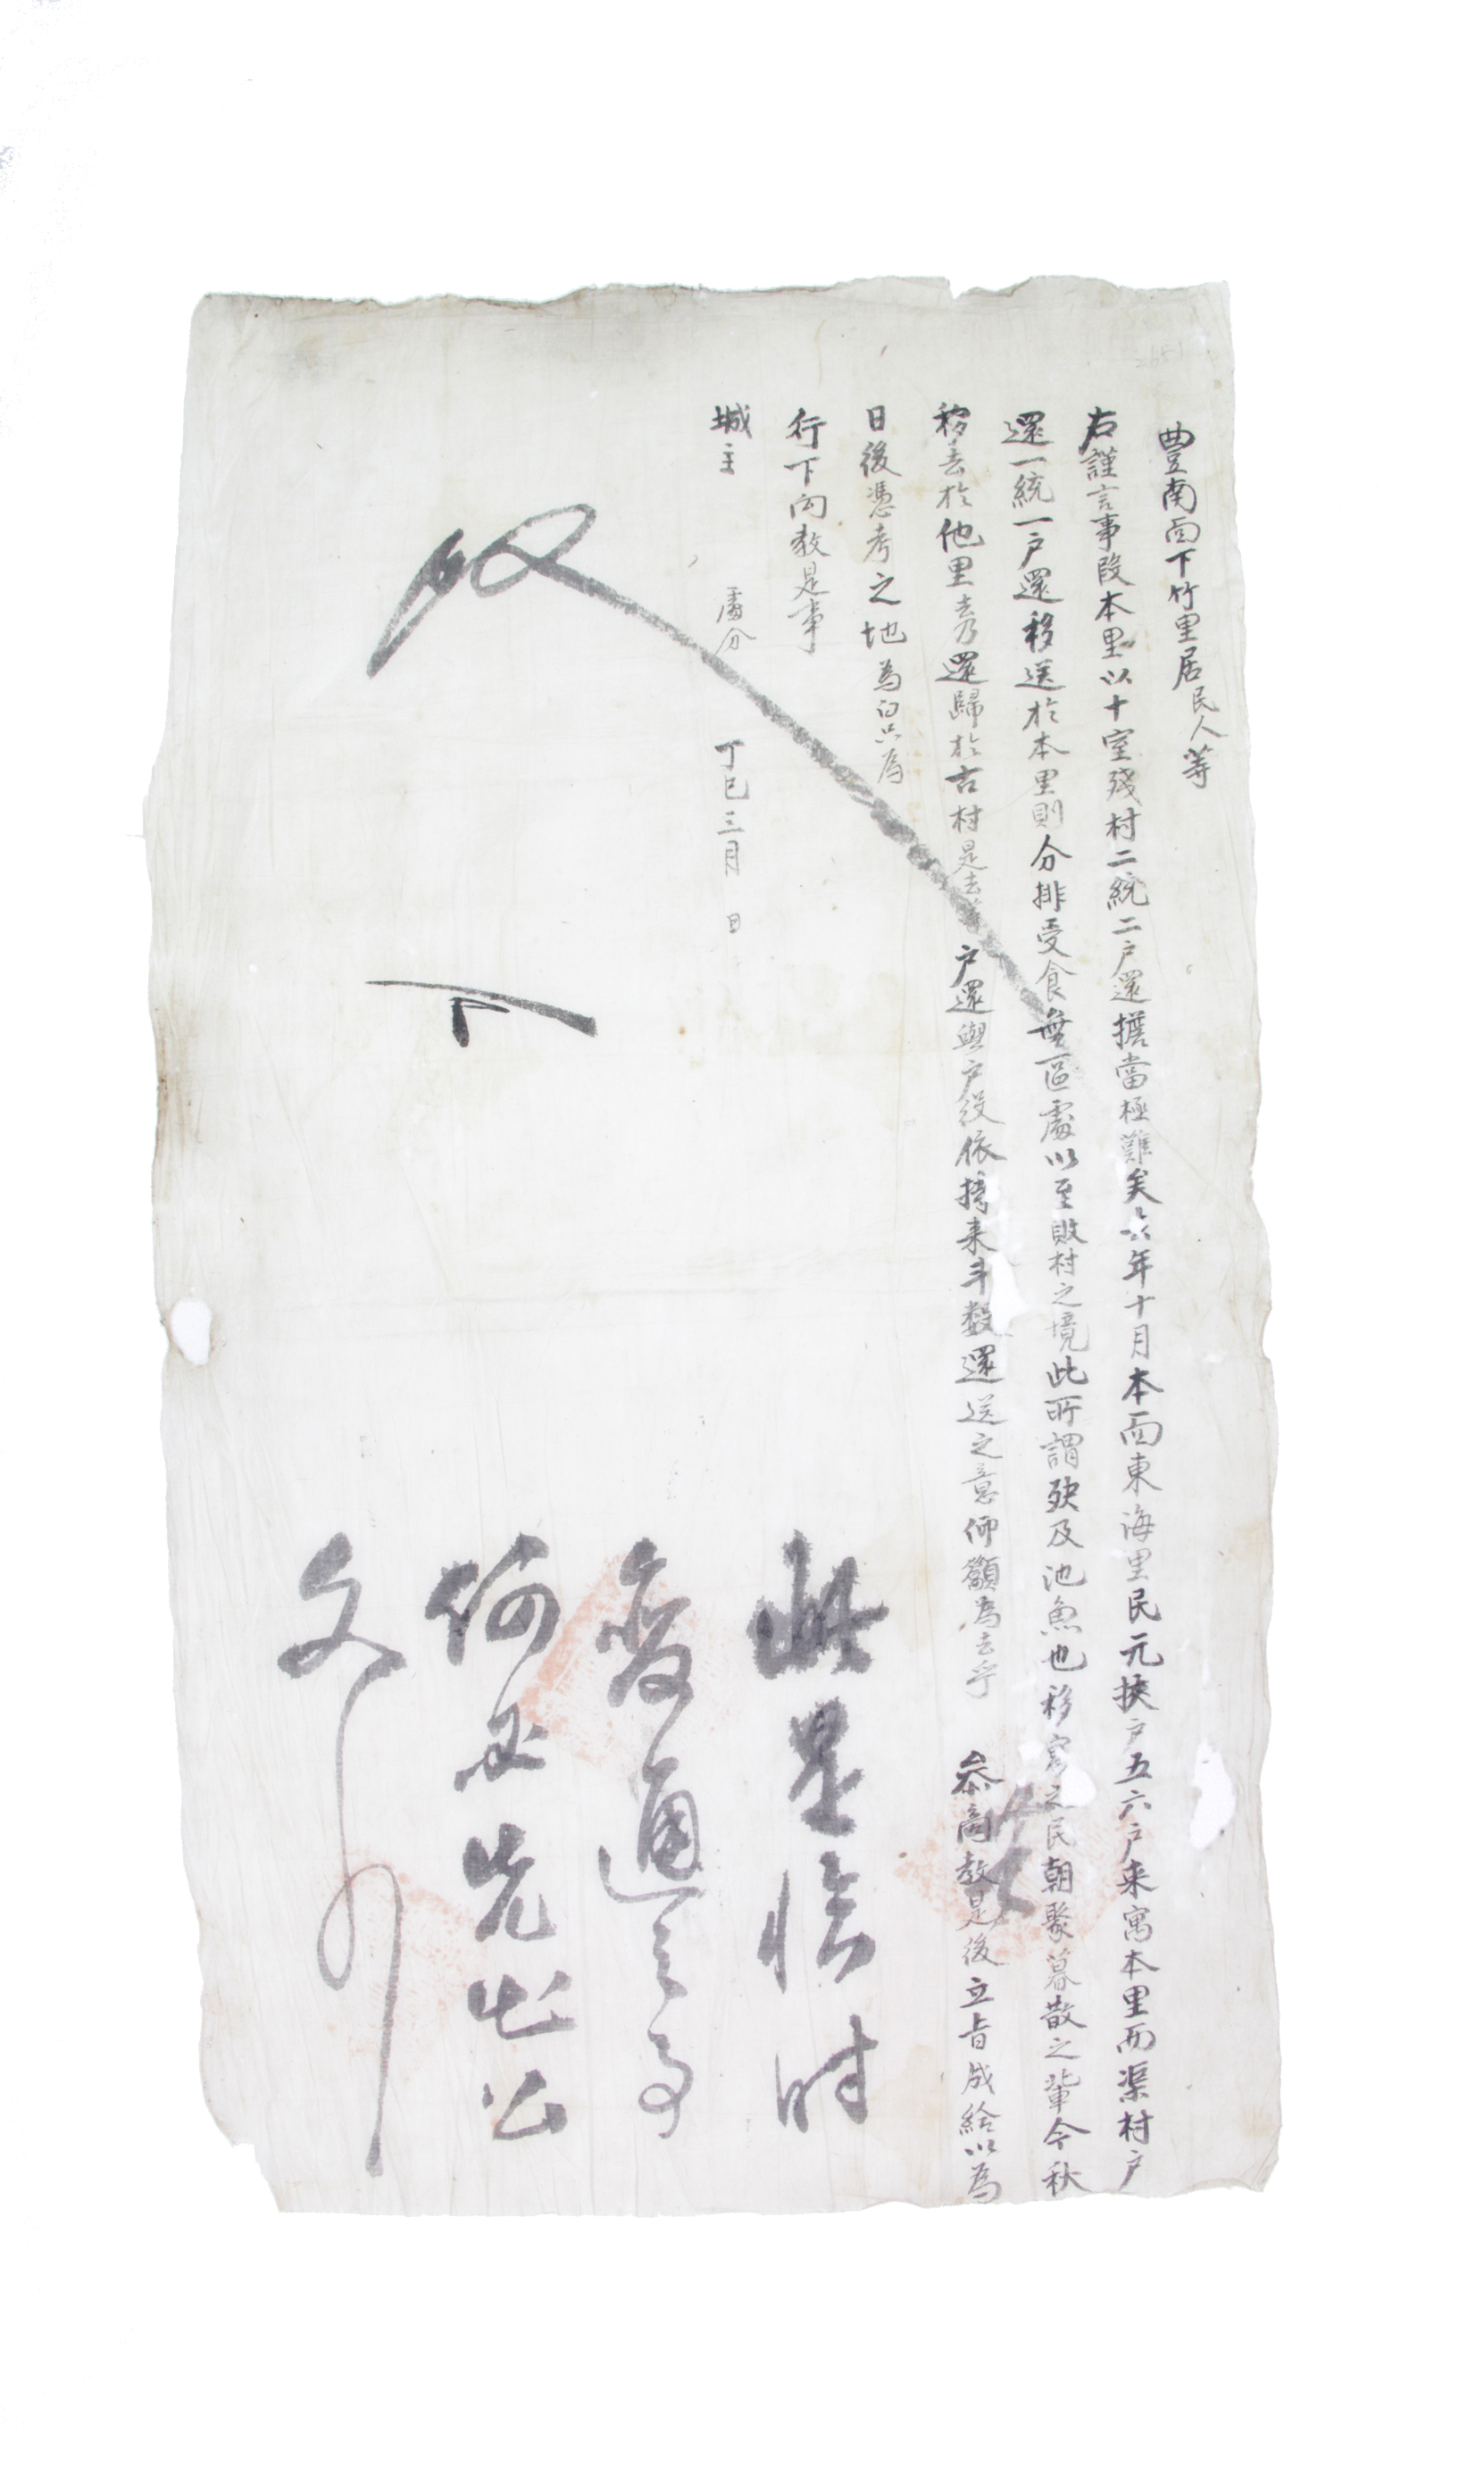 豊南面下竹里居民人等
右謹言事段本里以十室殘村二統二户還擔當極難矣年十月本面東海里民元挾户五六户来寓本里而渠村户
還一統一户還移送於本里則分排受食無區處以至敗村之境此所謂殃及池魚也移寓之民朝聚暮散之輩今秋
移去於他里去乃還歸於古村是去等户還與户役依摶来斗數還送之意仰籲為去乎 叅商教是後立旨成給以為
日後憑考之地為白只為
行下向教是事
城主 處分 丁巳三月 日
此是臨時
變通之事
何必先出公
文